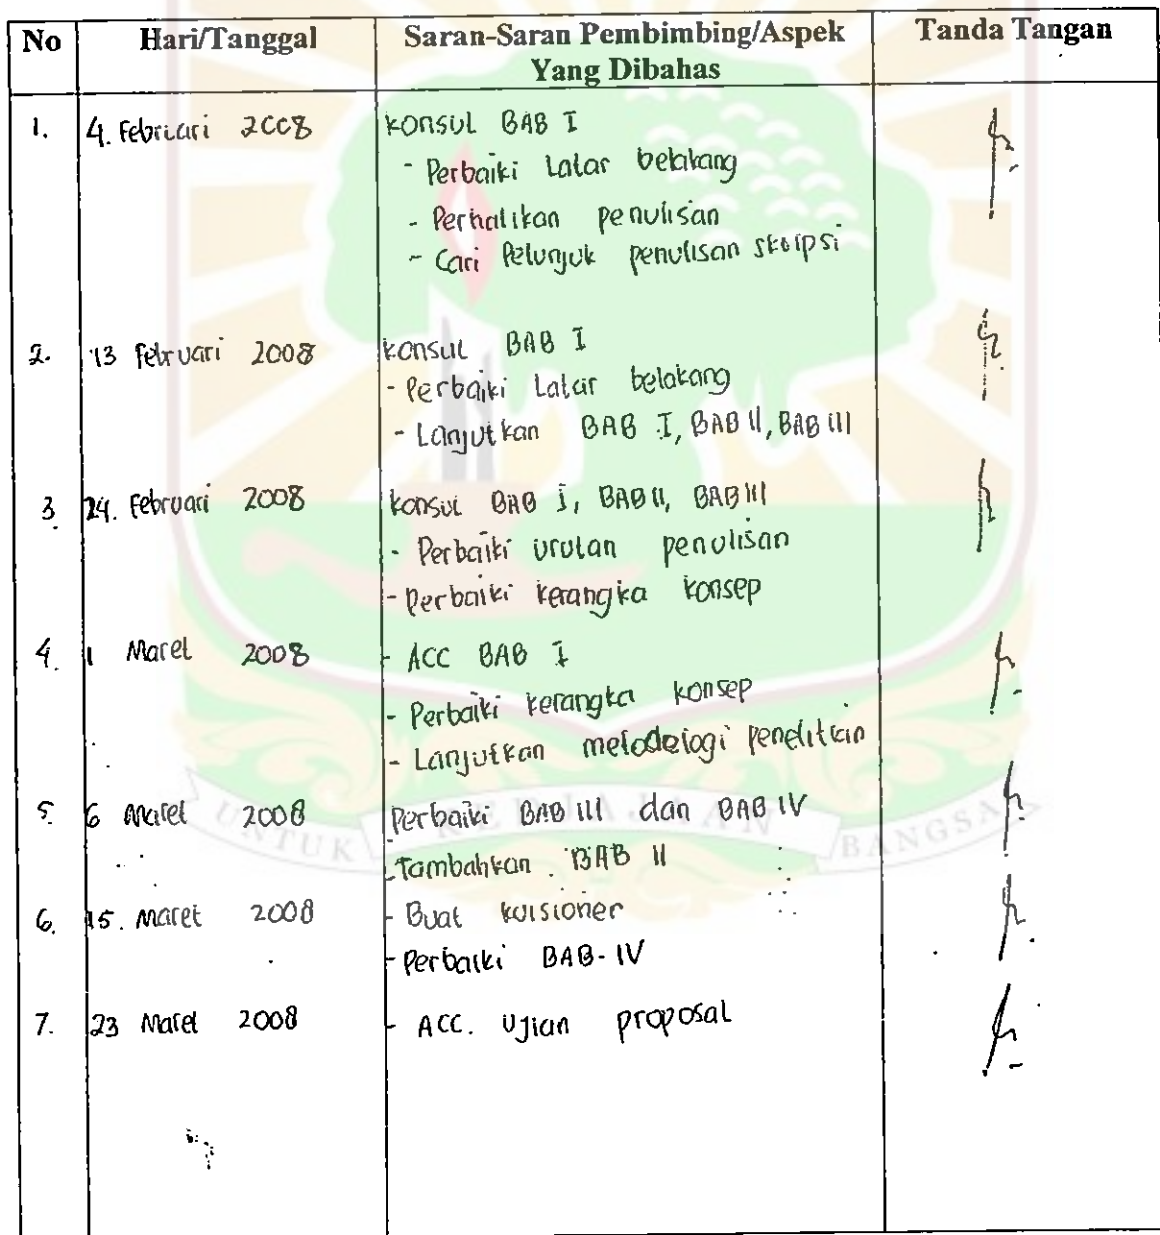 No Hari/Tanggal Saran-Saran Pembimbing/Aspek Yang Dibahas Tanda Tangan
1. 4. Februari 2008 Konsul BAB I
- Perbaiki Latar belakang
- Perhatikan penulisan
- Cari Petunjuk penulisan skripsi
2. 13 Februari 2008 Konsul BAB I
- Perbaiki Latar belakang
- Lanjutkan BAB I, BAB II, BAB III
3. 24. Februari 2008 Konsul BAB I, BAB II, BAB III
- Perbaiki urutan penulisan
- Perbaiki kerangka konsep
4. 1 Maret 2008 - ACC BAB I
- Perbaiki kerangka konsep
- Lanjutkan metodelogi penelitian
5. 6 Maret 2008 Perbaiki BAB III dan BAB IV
- Tambahkan BAB II
6. 15. Maret 2008 - Buat kuisioner
- Perbaiki BAB-IV
7. 23 Maret 2008 - ACC. Ujian proposal
UNTUK KEJAJAAN BANGSA